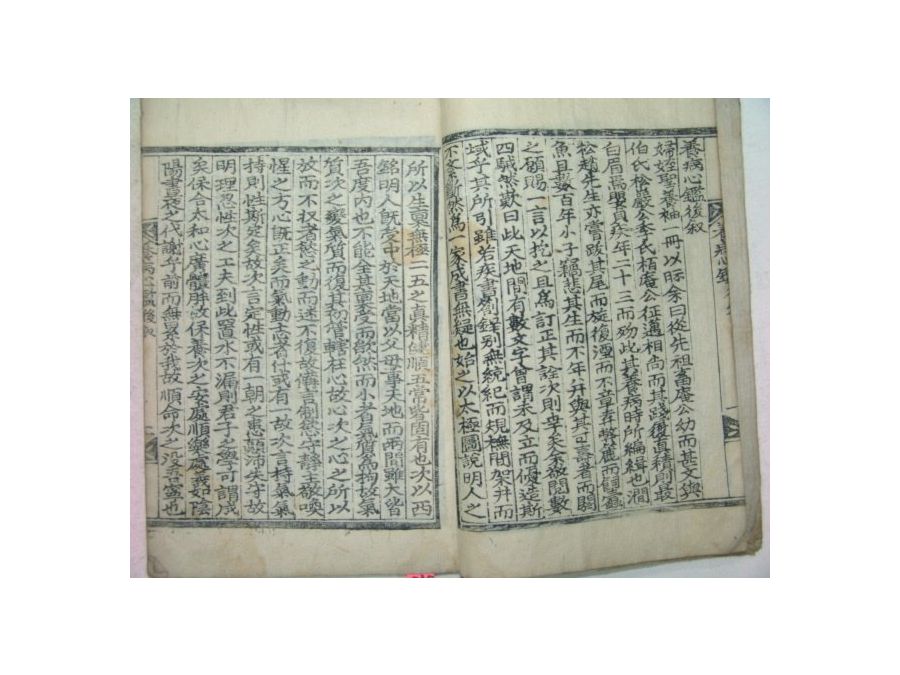 養病心鑑後叙
姪聖養袖一冊以眎余曰從先祖畜庵公幼而甚文與
伯氏松巖公季氏栢庵公征邁相尚而其踐復眞積則最
白眉焉嬰貞疾年二十三而殀此其養病時所編輯也澗
松趙先生亦嘗跋其尾而旋復湮而不章弁弊鹿而雙蠹
魚且數百年小子竊悲其生而不年幷與其可壽者而閼
之願賜一言以抚之且爲訂正其詮次則幸矣余敬閱數
四駴然歎曰此天地間有數文字曾謂未及立而優造斯
域乎其所引雖若疾書劄錄別無統紀而規橅間架井而
不紊斷然爲一家成書無疑也始之以太極圖說明人之
所以生稟無極二五之眞精健順五常皆固有也次以西
銘明人旣處中於天地當以父母事天地而兩間雖大皆
吾度內也不能全其重受而欿然而小者氣質爲拘故氣
質次之變氣質而復其初管轄在心故心次之心之所以
放而不收者慾之動而迷不復故備言制慾守靜主敬喚
惺之方心旣正矣而氣動志者什或有一故次言持氣氣
持則性斯定矣故次言定性或有一朝之患顚沛失守故
明理忍性次之工夫到此置水不漏則君子之學可謂成
矣保合太和心廣體胖故保養次之安處順樂處義如陰
陽晝夜之代謝乎前而無累於我故順命次之沒吾寧也
養病心鑑後叙
一
養病心鑑後叙
二